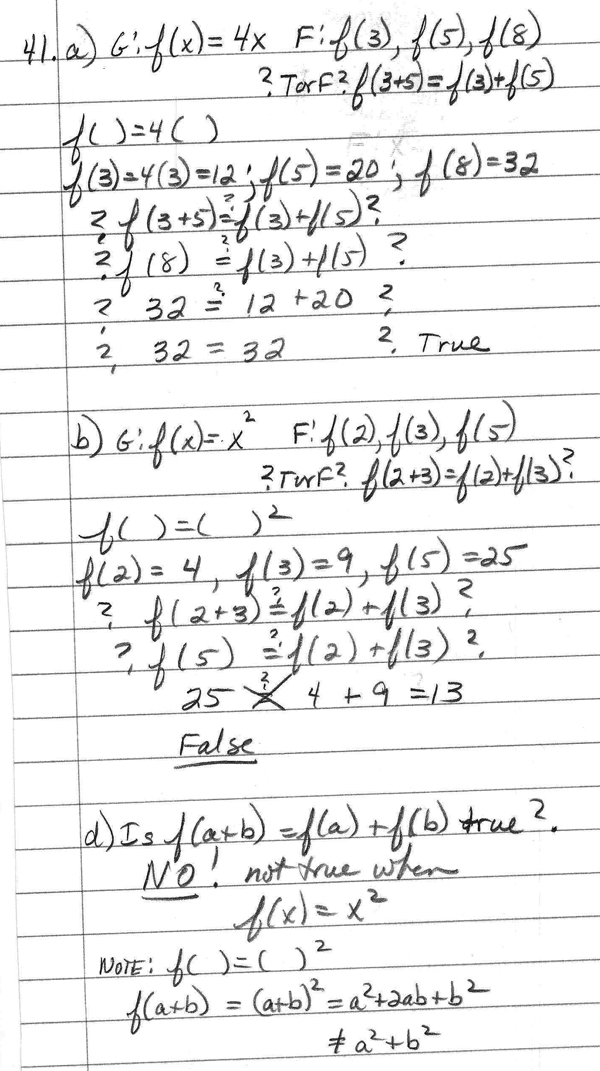 41. a) G: f(x) = 4x F: f(3), f(5), f(8)
? TorF? f(3+5) = f(3)+f(5)
f( ) = 4( )
f(3) = 4(3) = 12 ; f(5) = 20 ; f(8) = 32
? f(3+5) ≟ f(3)+f(5) ?
? f(8) ≟ f(3)+f(5) ?
? 32 ≟ 12 + 20 ?
? 32 = 32 ? True
b) G: f(x) = x² F: f(2), f(3), f(5)
? TorF? f(2+3) = f(2)+f(3)?
f( ) = ( )²
f(2) = 4, f(3) = 9, f(5) = 25
? f(2+3) ≟ f(2) + f(3) ?
? f(5) ≟ f(2) + f(3) ?
25 ≠ 4 + 9 = 13
False
d) Is f(a+b) = f(a) + f(b) true?
NO! not true when
f(x) = x²
NOTE: f( ) = ( )²
f(a+b) = (a+b)² = a²+2ab+b²
≠ a²+b²